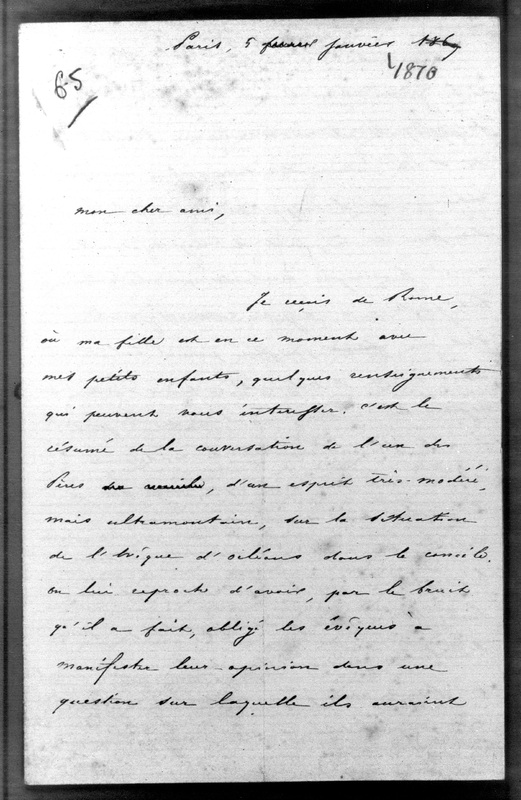 Paris, 5 janvier 1869
1870
65
mon cher ami,
Je reçois de Rome,
où ma fille est en ce moment avec
mes petits enfants, quelques renseignements
qui peuvent vous intéresser. c'est le
résumé de la conversation de l'un des
Pères du concile, d'un esprit très-modéré,
mais ultramontain, sur la situation
de l'évêque d'orléans dans le concile.
on lui reproche d'avoir, par le bruit
qu'il a fait, obligé les évêques à
manifester leur opinion dans une
question sur laquelle ils auraient